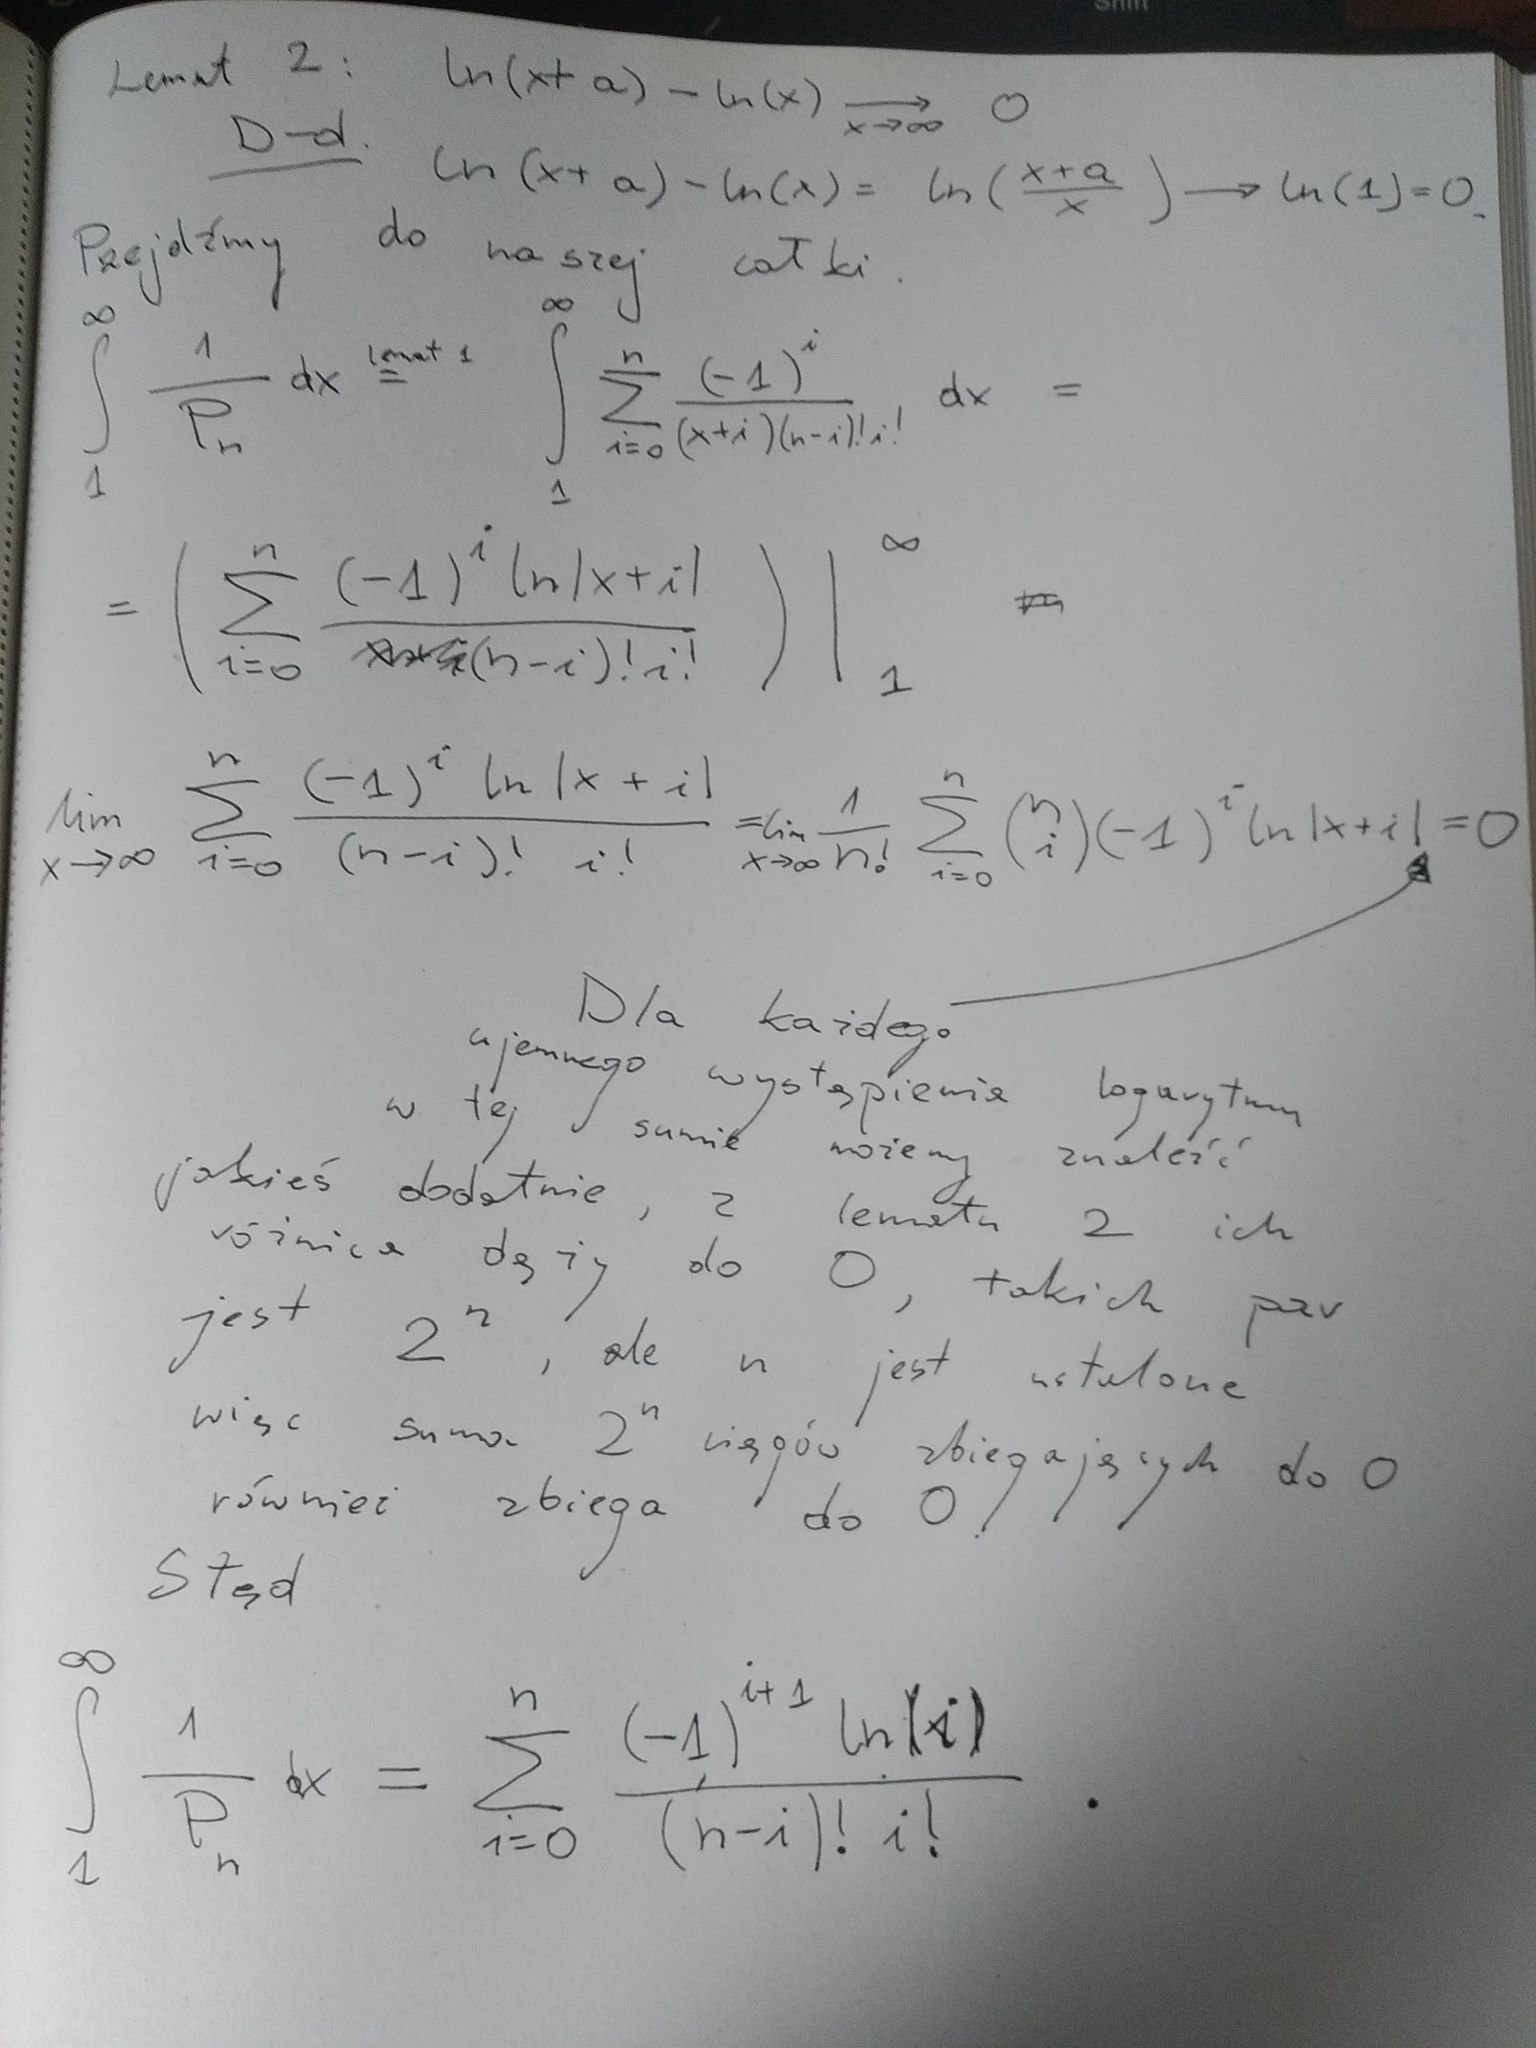 Shift
Lemat 2: ln(x+a) - ln(x) ⟶ 0
x→∞
D-d. ln(x+a) - ln(x) = ln((x+a)/x) ⟶ ln(1) = 0.
Przejdźmy do naszej całki.
∫_1^∞ 1/P_n dx =^{lemat 1} ∫_1^∞ ∑_{i=0}^n (-1)^i/((x+i)(n-i)!i!) dx =
= (∑_{i=0}^n (-1)^i ln|x+i| / ((n-i)!i!)) |_1^∞
lim_{x→∞} ∑_{i=0}^n (-1)^i ln|x+i| / ((n-i)! i!) = lim_{x→∞} 1/n! ∑_{i=0}^n (n i)(-1)^i ln|x+i| = 0
Dla każdego
ujemnego wystąpienia logarytmu
w tej sumie możemy znaleźć
jakieś dodatnie, z lematu 2 ich
różnica dąży do 0, takich par
jest 2^n, ale n jest ustalone
więc suma 2^n ciągów zbiegających do 0
również zbiega do 0.
Stąd
∫_1^∞ 1/P_n dx = ∑_{i=0}^n (-1)^{i+1} ln(i) / ((n-i)! i!) .